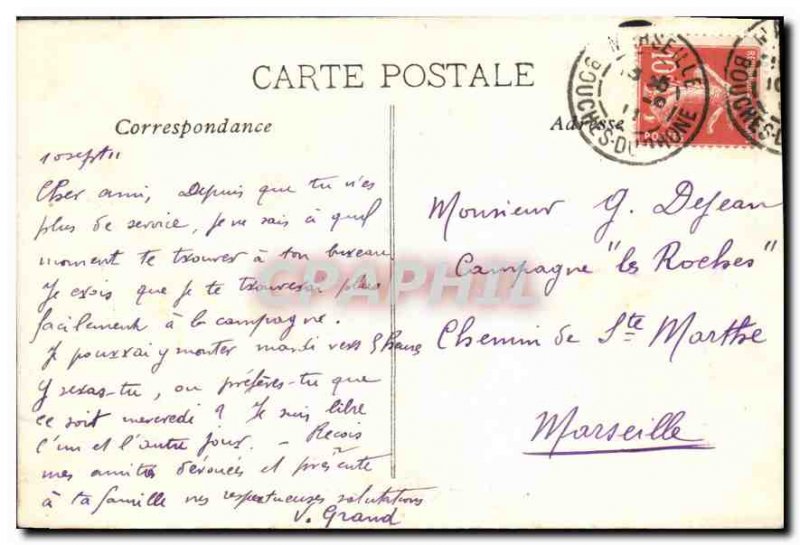 CARTE POSTALE
Correspondance
Adresse
10 sept 11
Cher ami, Depuis que tu n'es
plus de service, je ne sais à quel
moment te trouver à ton bureau
Je crois que je te trouverai plus
facilement à la campagne.
Je pourrai y monter mardi vers 5 heures
Y seras-tu, ou préfères-tu que
ce soit mercredi ? Je suis libre
l'un et l'autre jour. - Reçois
mes amitiés dévouées et présente
à ta famille mes respectueuses salutations
V. Grand
Monsieur G. Dejean
Campagne "les Roches"
Chemin de Ste Marthe
Marseille
MARSEILLE
BOUCHES-DU-RHONE
10
CPAPHIL